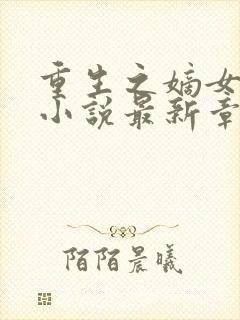 重生之嫡女
小说最新章
陌陌晨曦